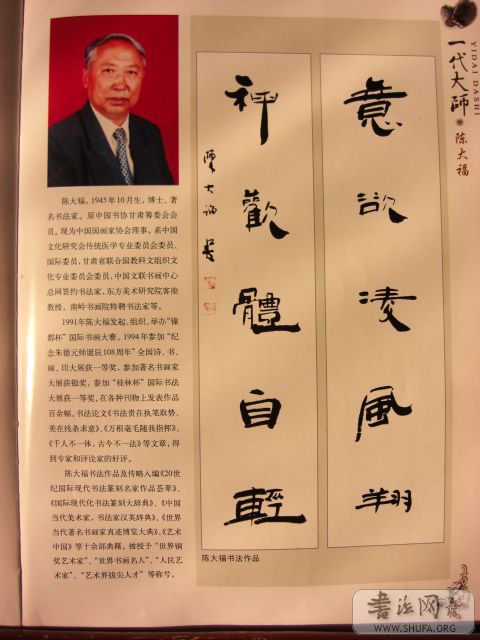 YIDAI DASHI
一代大師
陈大福
意欲凌風翔
神歡體自輕
陳大福書
陈大福书法作品
陈大福，1945年10月生，博士、著
名书法家。原中国书协甘肃筹委会会
员。现为中国国画家协会理事。系中国
文化研究会传统医学专业委员会委员、
国际委员，甘肃省联合国教科文组织文
化专业委员会委员，中国文联书画中心
总网签约书法家，东方美术研究院客座
教授、南岭书画院特聘书法家等。
1991年陈大福发起、组织、举办“镍
都杯”国际书画大赛。1994年参加“纪
念朱德元帅诞辰108周年”全国诗、书、
画、印大展获一等奖，参加著名书画家
大展获银奖，参加“桂林杯”国际书法
大展获一等奖。在各种刊物上发表作品
百余幅。书法论文《书法贵在执笔取势、
美在线条求意》、《万根毫毛随我指挥》、
《千人不一体，古今不一法》等文章，得
到专家和评论家的好评。
陈大福书法作品及传略入编《20世
纪国际现代书法篆刻名家作品荟萃》、
《国际现代化书法篆刻大辞典》、《中国
当代美术家，书法家汉英辞典》、《世界
当代著名书画家真迹博览大典》、《艺术
中国》等十余部典籍。被授予“世界铜
奖艺术家”、“世界书画名人”、“人民艺
术家”、“艺术界拔尖人才”等称号。
書法网
WWW.SHUFA.ORG